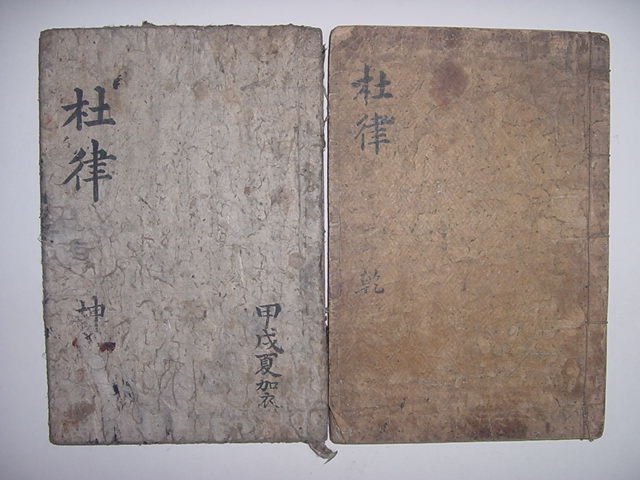 杜律
坤
甲戌夏加衣
杜律
乾